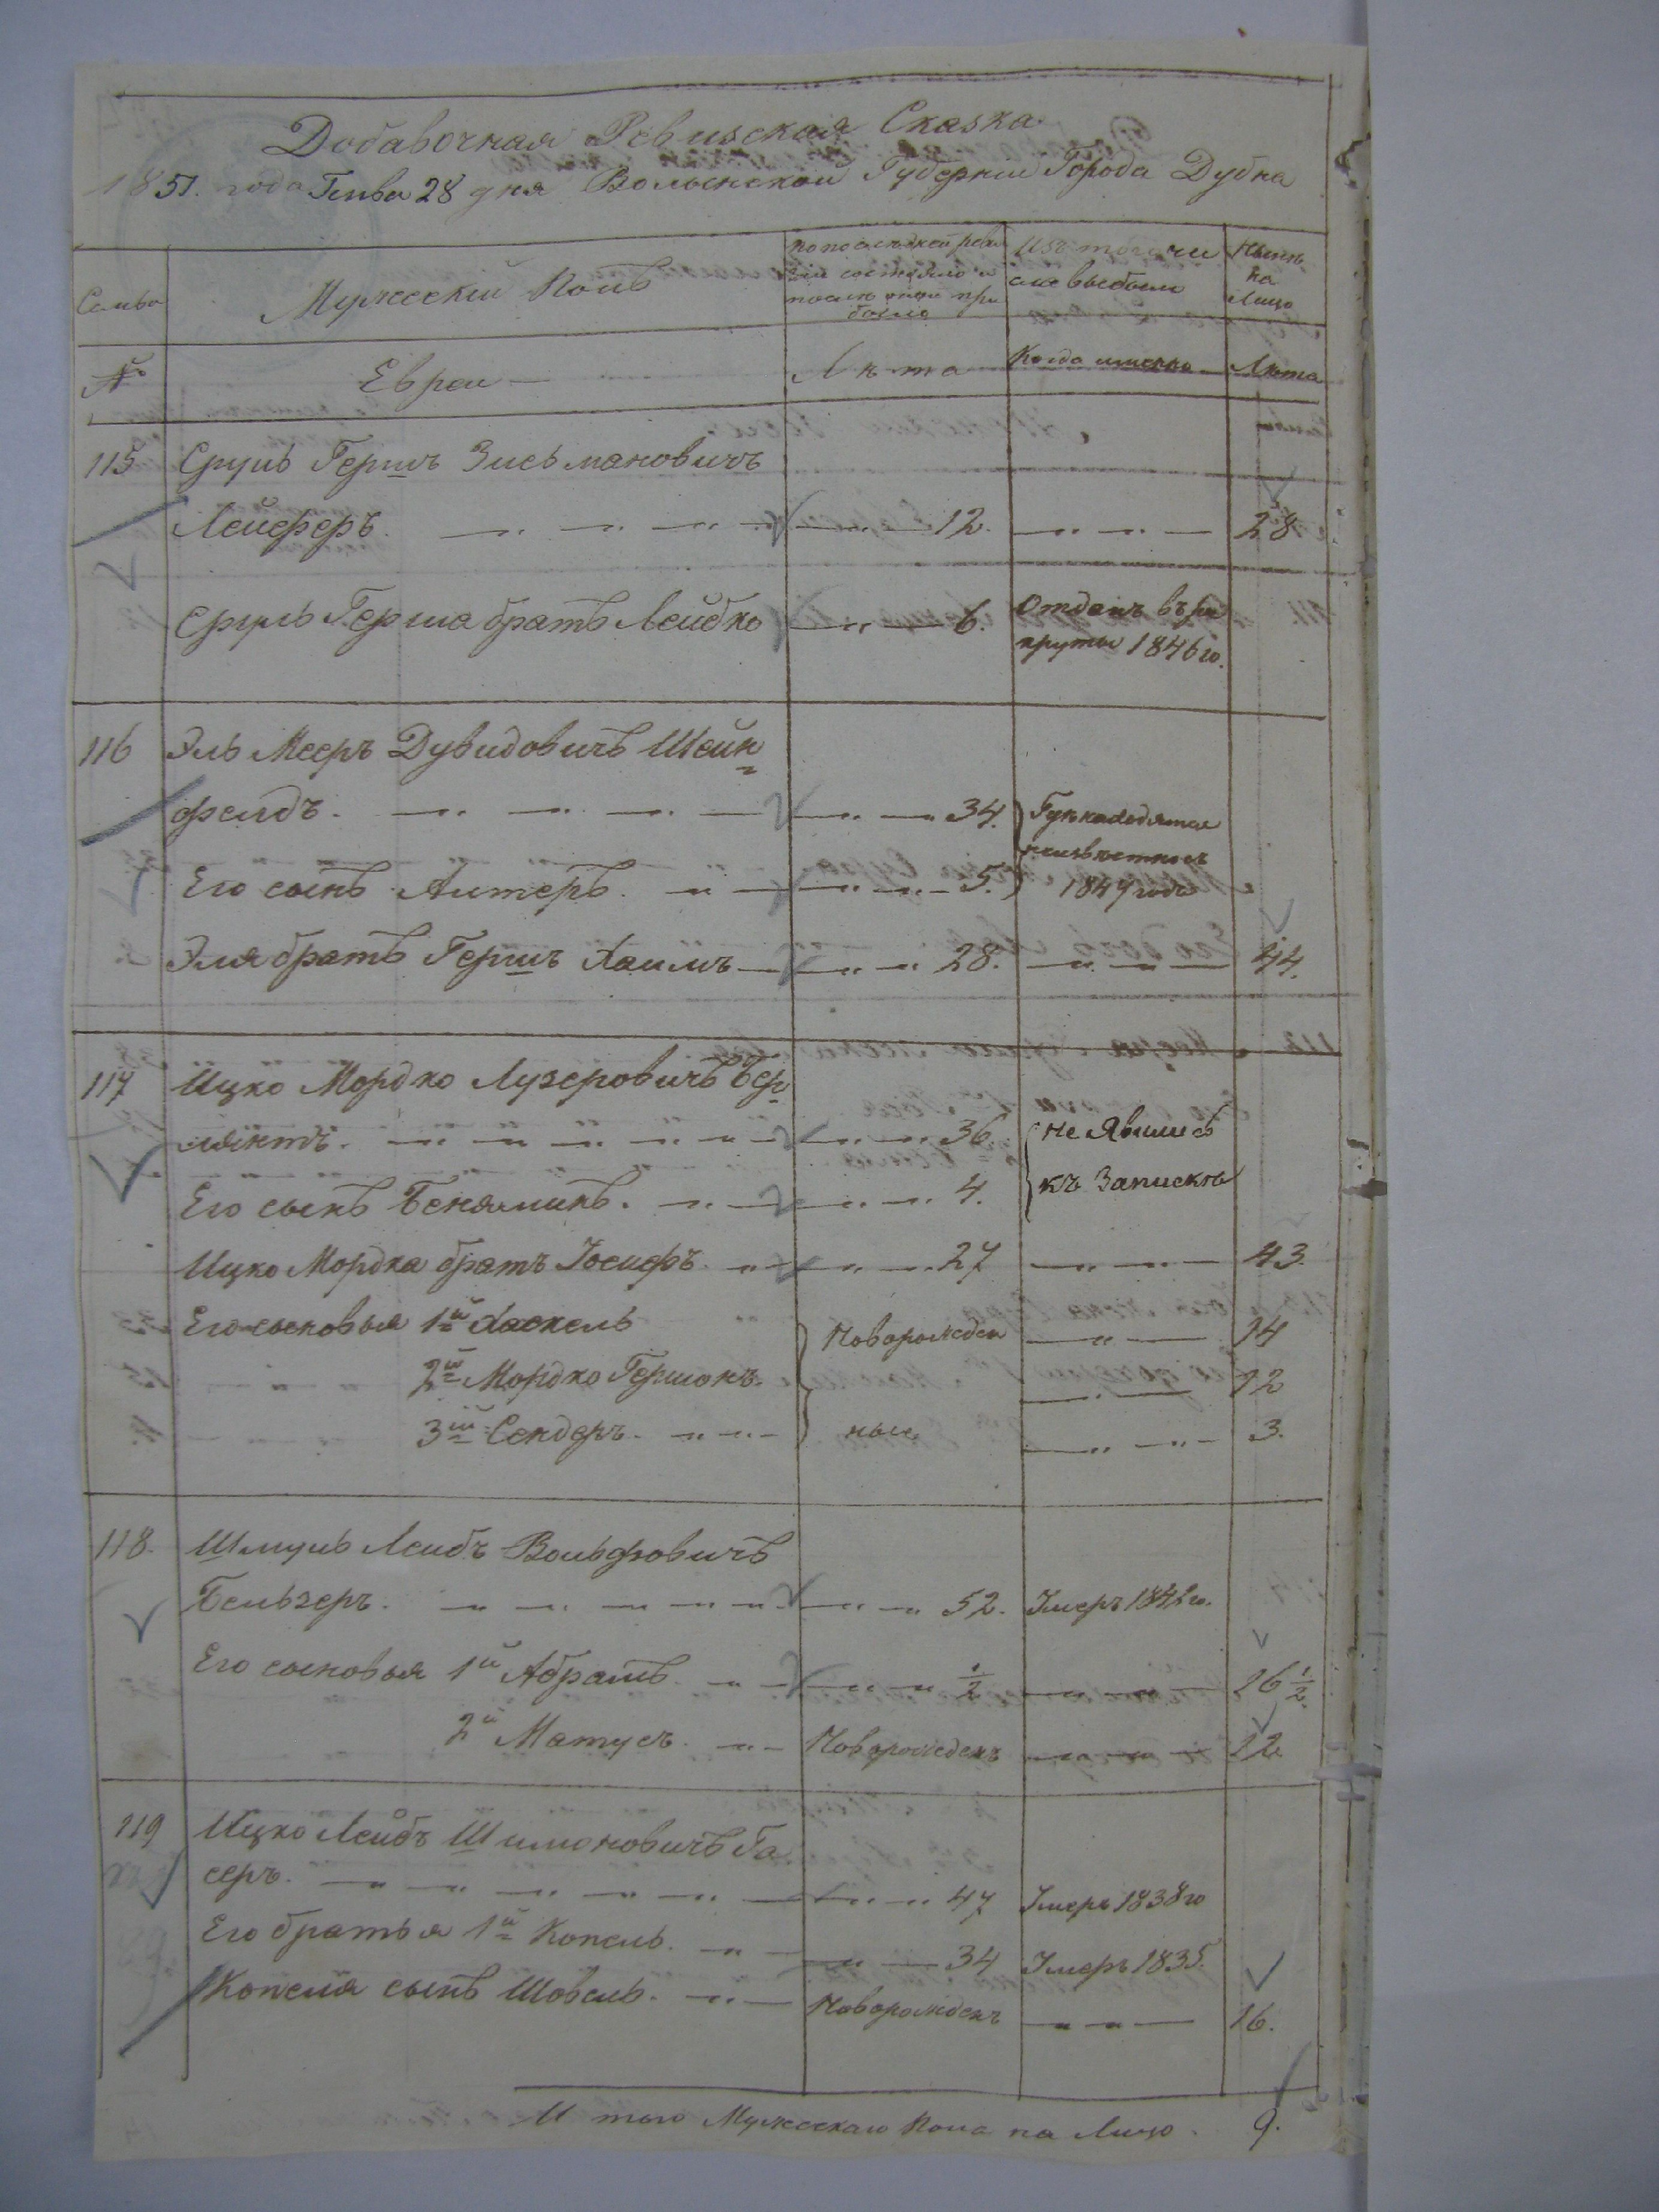 Добавочная Ревизская Сказка
1851. года Генва 28 дня Волынской Губерніи Города Дубна
Семьи
Мужескій Полъ
по последней реви
зіи состояло и
после оной при
было
Изъ того числа
выбыли
Нынѣ
на
Лицо
№
Евреи
Лѣта
Когда именно
Лѣта
115 Сруль Гершъ Зисьмановичъ
Лейферъ. 12. 28
Сруль Герша братъ Лейбко 6. Отданъ въ ре
круты 1846го.
116 Эль Мееръ Дувидовичъ Штейн
фелдъ. 34.
неизвѣстно съ
Его сынъ Алтеръ. 5. 1847 года
Эля братъ Гершъ Хаимъ 28. 44.
117 Ицко Мордко Лузеровичъ Бер
ляктъ. 36. не Явились
Его сынъ Беняминъ. 4. къ Запискѣ
Ицко Мордка братъ Іосифъ. 27 43.
Его сыновья 1й Хаскель Новорожден 14
2й Мордко Гершонъ. 12
3й Сендеръ. ные 3.
118. Шмуль Лейбъ Вольфовичъ
Бельзеръ. 52. Умеръ 1842го.
Его сыновья 1й Абрамъ. 1/2 16 1/2
2й Матусъ. Новорожденъ 12.
119 Ицко Лейбъ Шимоновичъ Га
серъ. 47 Умеръ 1838го
Его братья 1й Копель. 34 Умеръ 1835.
Копеля сынъ Шовель. Новорожденъ 16.
И того Мужескаго Пола на Лицо. 9.